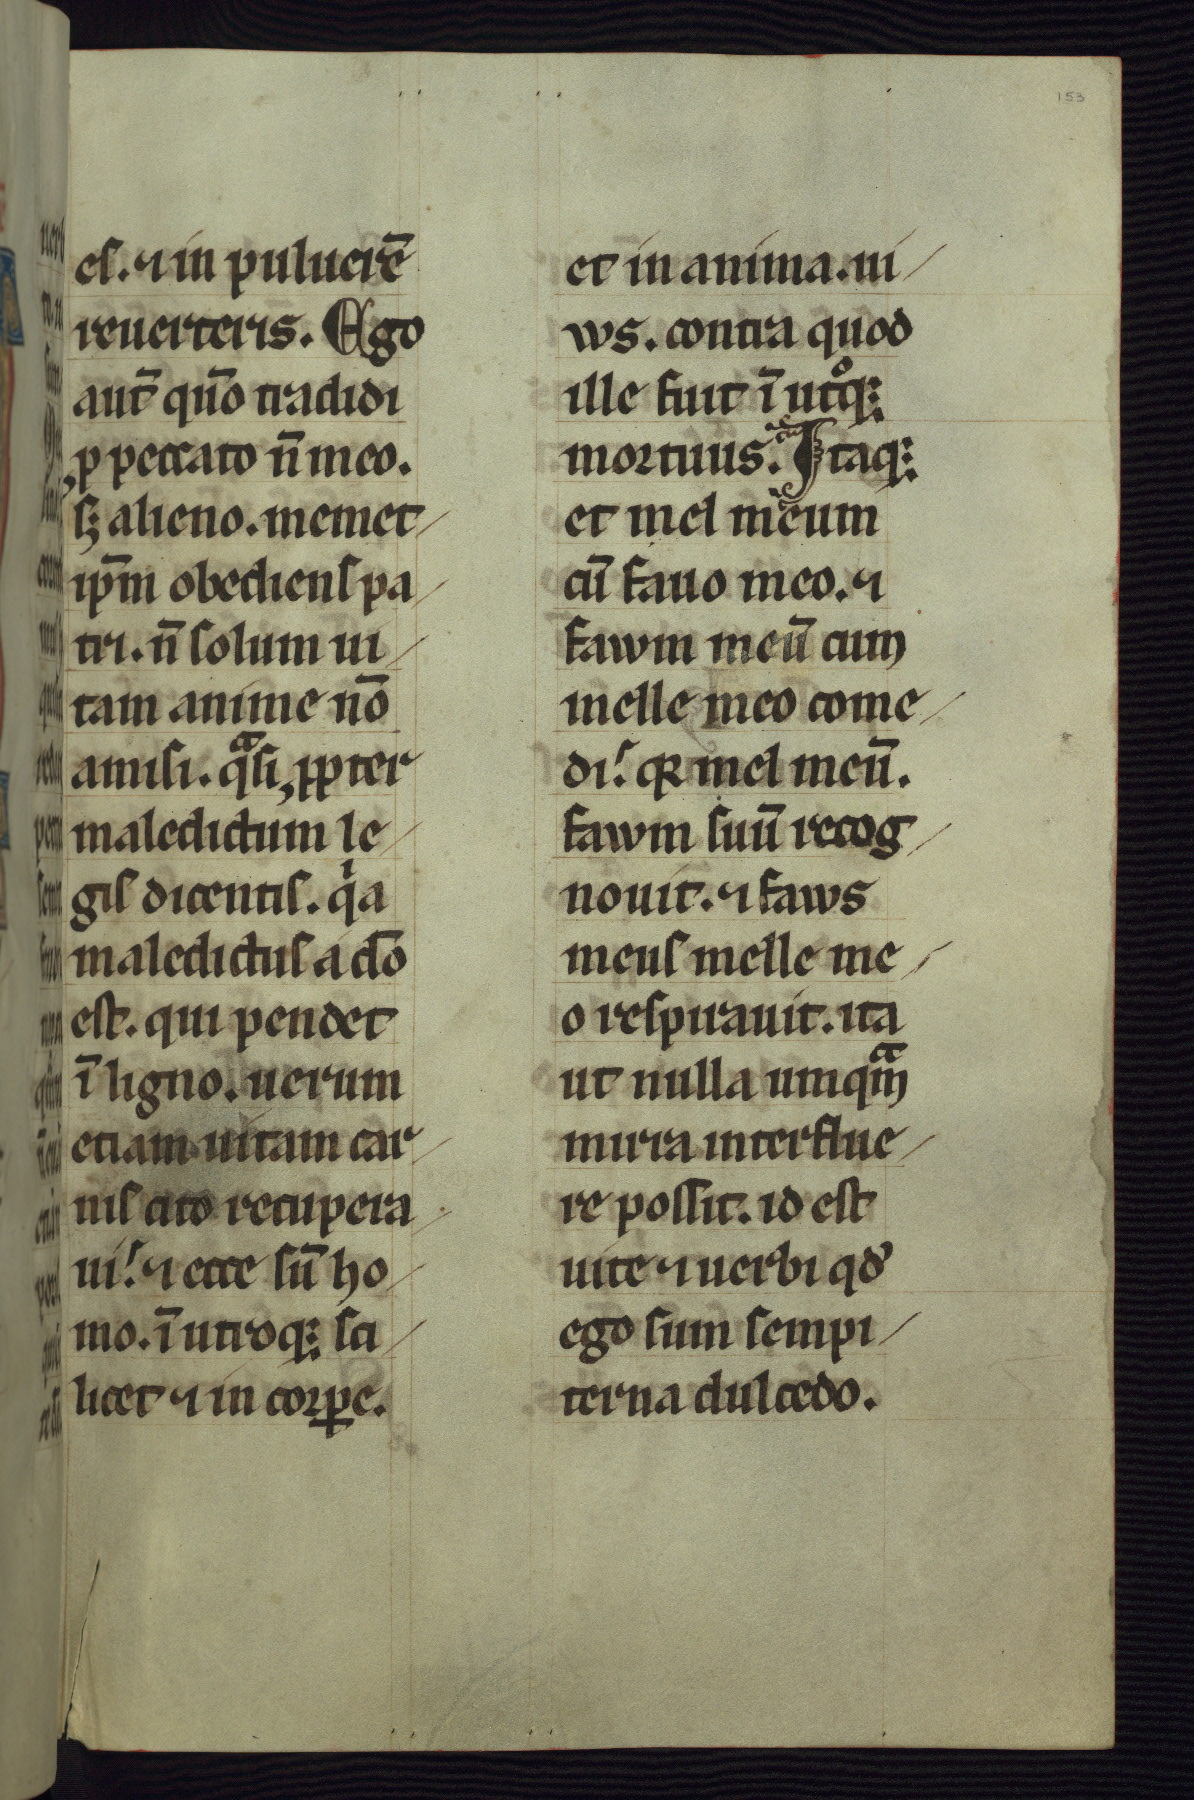 153
es. ⁊ in puluerē
reuerteris. Ego
aut̄ qn̄o tradidi
ꝓ peccato n̄ meo.
sꝫ alieno. memet
ip̄m obediens pa
tri. n̄ solum ui
tam anime nō
amisi. qͣsi ꝓpter
maledictum le
gis dicentis. qͥa
maledictus a do̅
est. qui pendet
ī ligno. uerum
etiam uitam car
nis cito recupera
ui. ⁊ ecce sū ho
mo. ī utroqꝫ sci
licet ⁊ in corꝑe.
et in anima. ui
ws. contra quod
ille fuit ī utͦqꝫ
mortuus. Itaqꝫ
et mel meum
cū fauo meo. ⁊
fawm meū cum
melle meo come
di. qꝛ mel meū.
fawm suū recog
nouit. ⁊ faws
meus melle me
o respirauit. ita
ut nulla umqͣm
mirra interflue
re possit. id est
uite ⁊ uerbi qd̓
ego sum sempi
terna dulcedo.